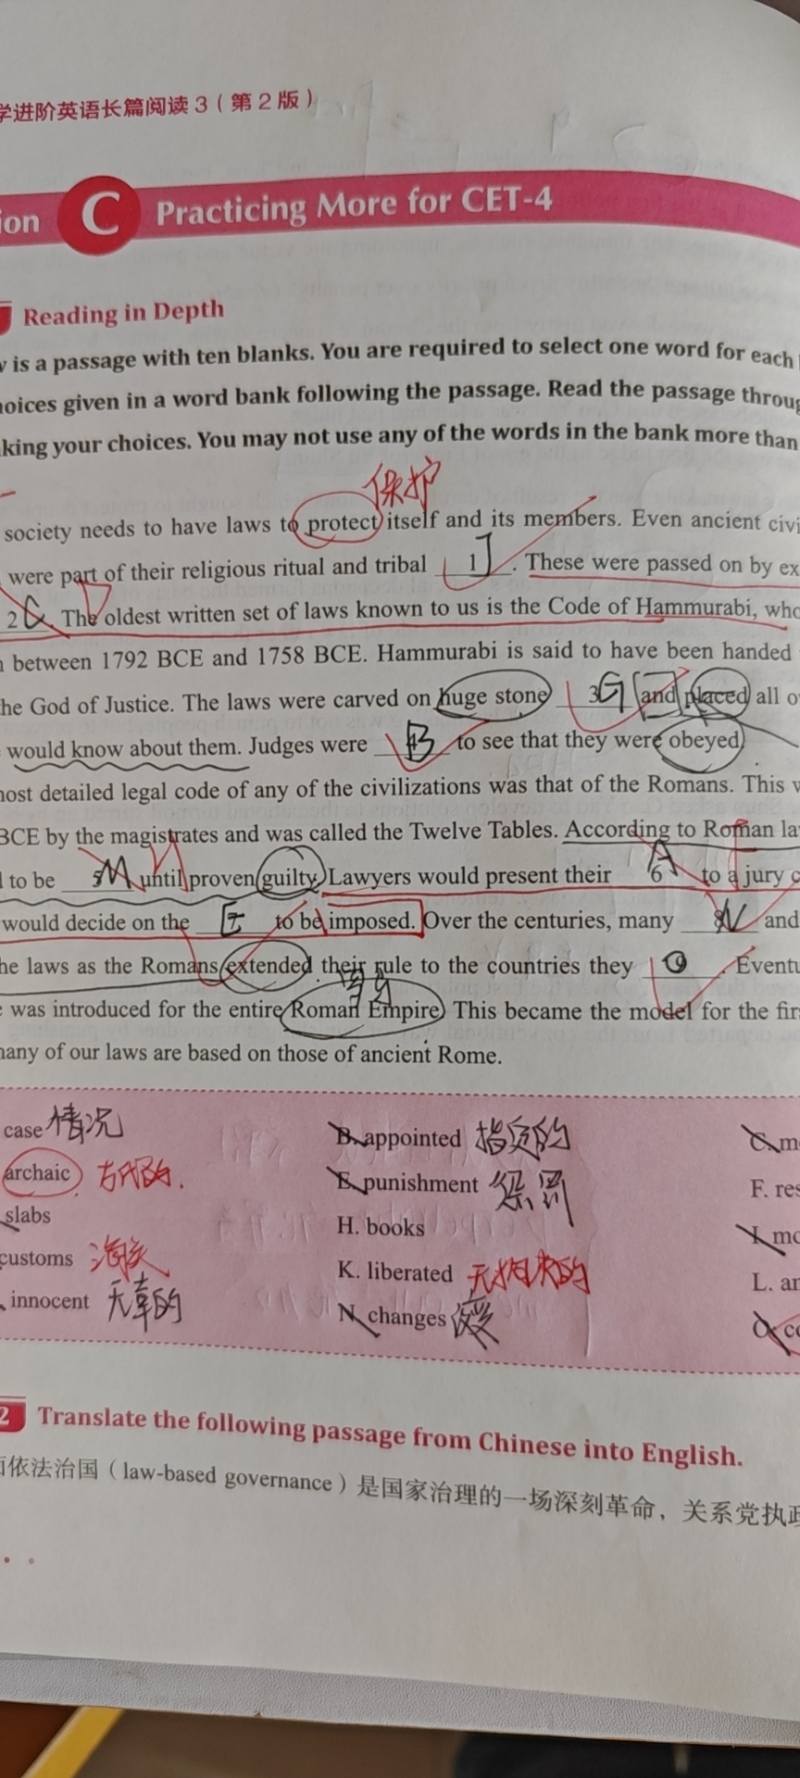 学进阶英语长篇阅读 3（第 2 版）
ion C Practicing More for CET-4
Reading in Depth
is a passage with ten blanks. You are required to select one word for each
oices given in a word bank following the passage. Read the passage throug
king your choices. You may not use any of the words in the bank more than
保护
society needs to have laws to protect itself and its members. Even ancient civi
were part of their religious ritual and tribal 1 J . These were passed on by ex
2 . The oldest written set of laws known to us is the Code of Hammurabi, who
between 1792 BCE and 1758 BCE. Hammurabi is said to have been handed
he God of Justice. The laws were carved on huge stone 3 G and placed all o
would know about them. Judges were B to see that they were obeyed
ost detailed legal code of any of the civilizations was that of the Romans. This
BCE by the magistrates and was called the Twelve Tables. According to Roman la
to be 5 M until proven guilty. Lawyers would present their 6 A to a jury
would decide on the E to be imposed. Over the centuries, many N and
he laws as the Romans extended their rule to the countries they O . Eventu
was introduced for the entire Roman Empire. This became the model for the fir
any of our laws are based on those of ancient Rome.
case 情况 B. appointed 指定的 C. m
archaic 古代的. E. punishment 惩罚 F. res
slabs H. books I. mo
customs 海关 K. liberated L. an
innocent 无辜的 N. changes 改变 O. co
2 Translate the following passage from Chinese into English.
依法治国（law-based governance）是国家治理的一场深刻革命，关系党执政